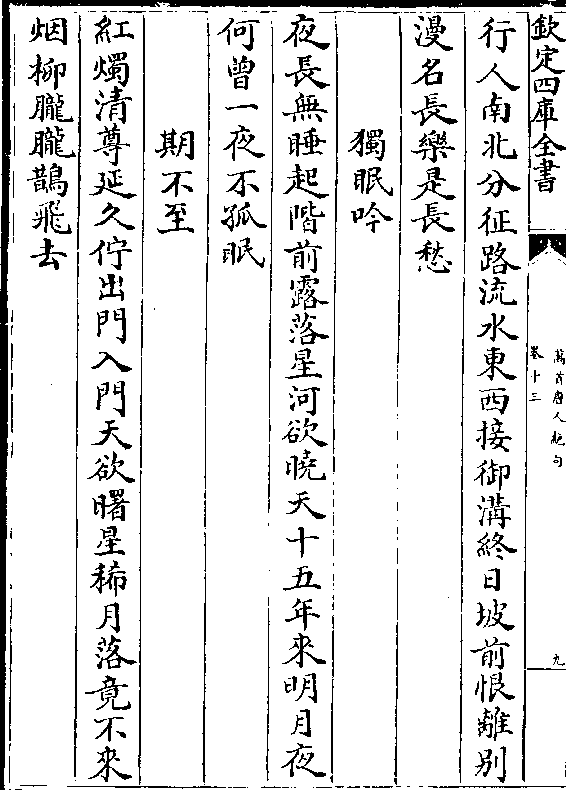 欽定四庫全書
萬首唐人絶句
卷十三
九
行人南北分征路流水東西接御溝終日坡前恨離别
漫名長樂是長愁
獨眠吟
夜長無睡起階前露落星河欲曉天十五年來明月夜
何曾一夜不孤眠
期不至
紅燭清尊延久佇出門入門天欲曙星稀月落竟不來
烟柳朧朧鵲飛去